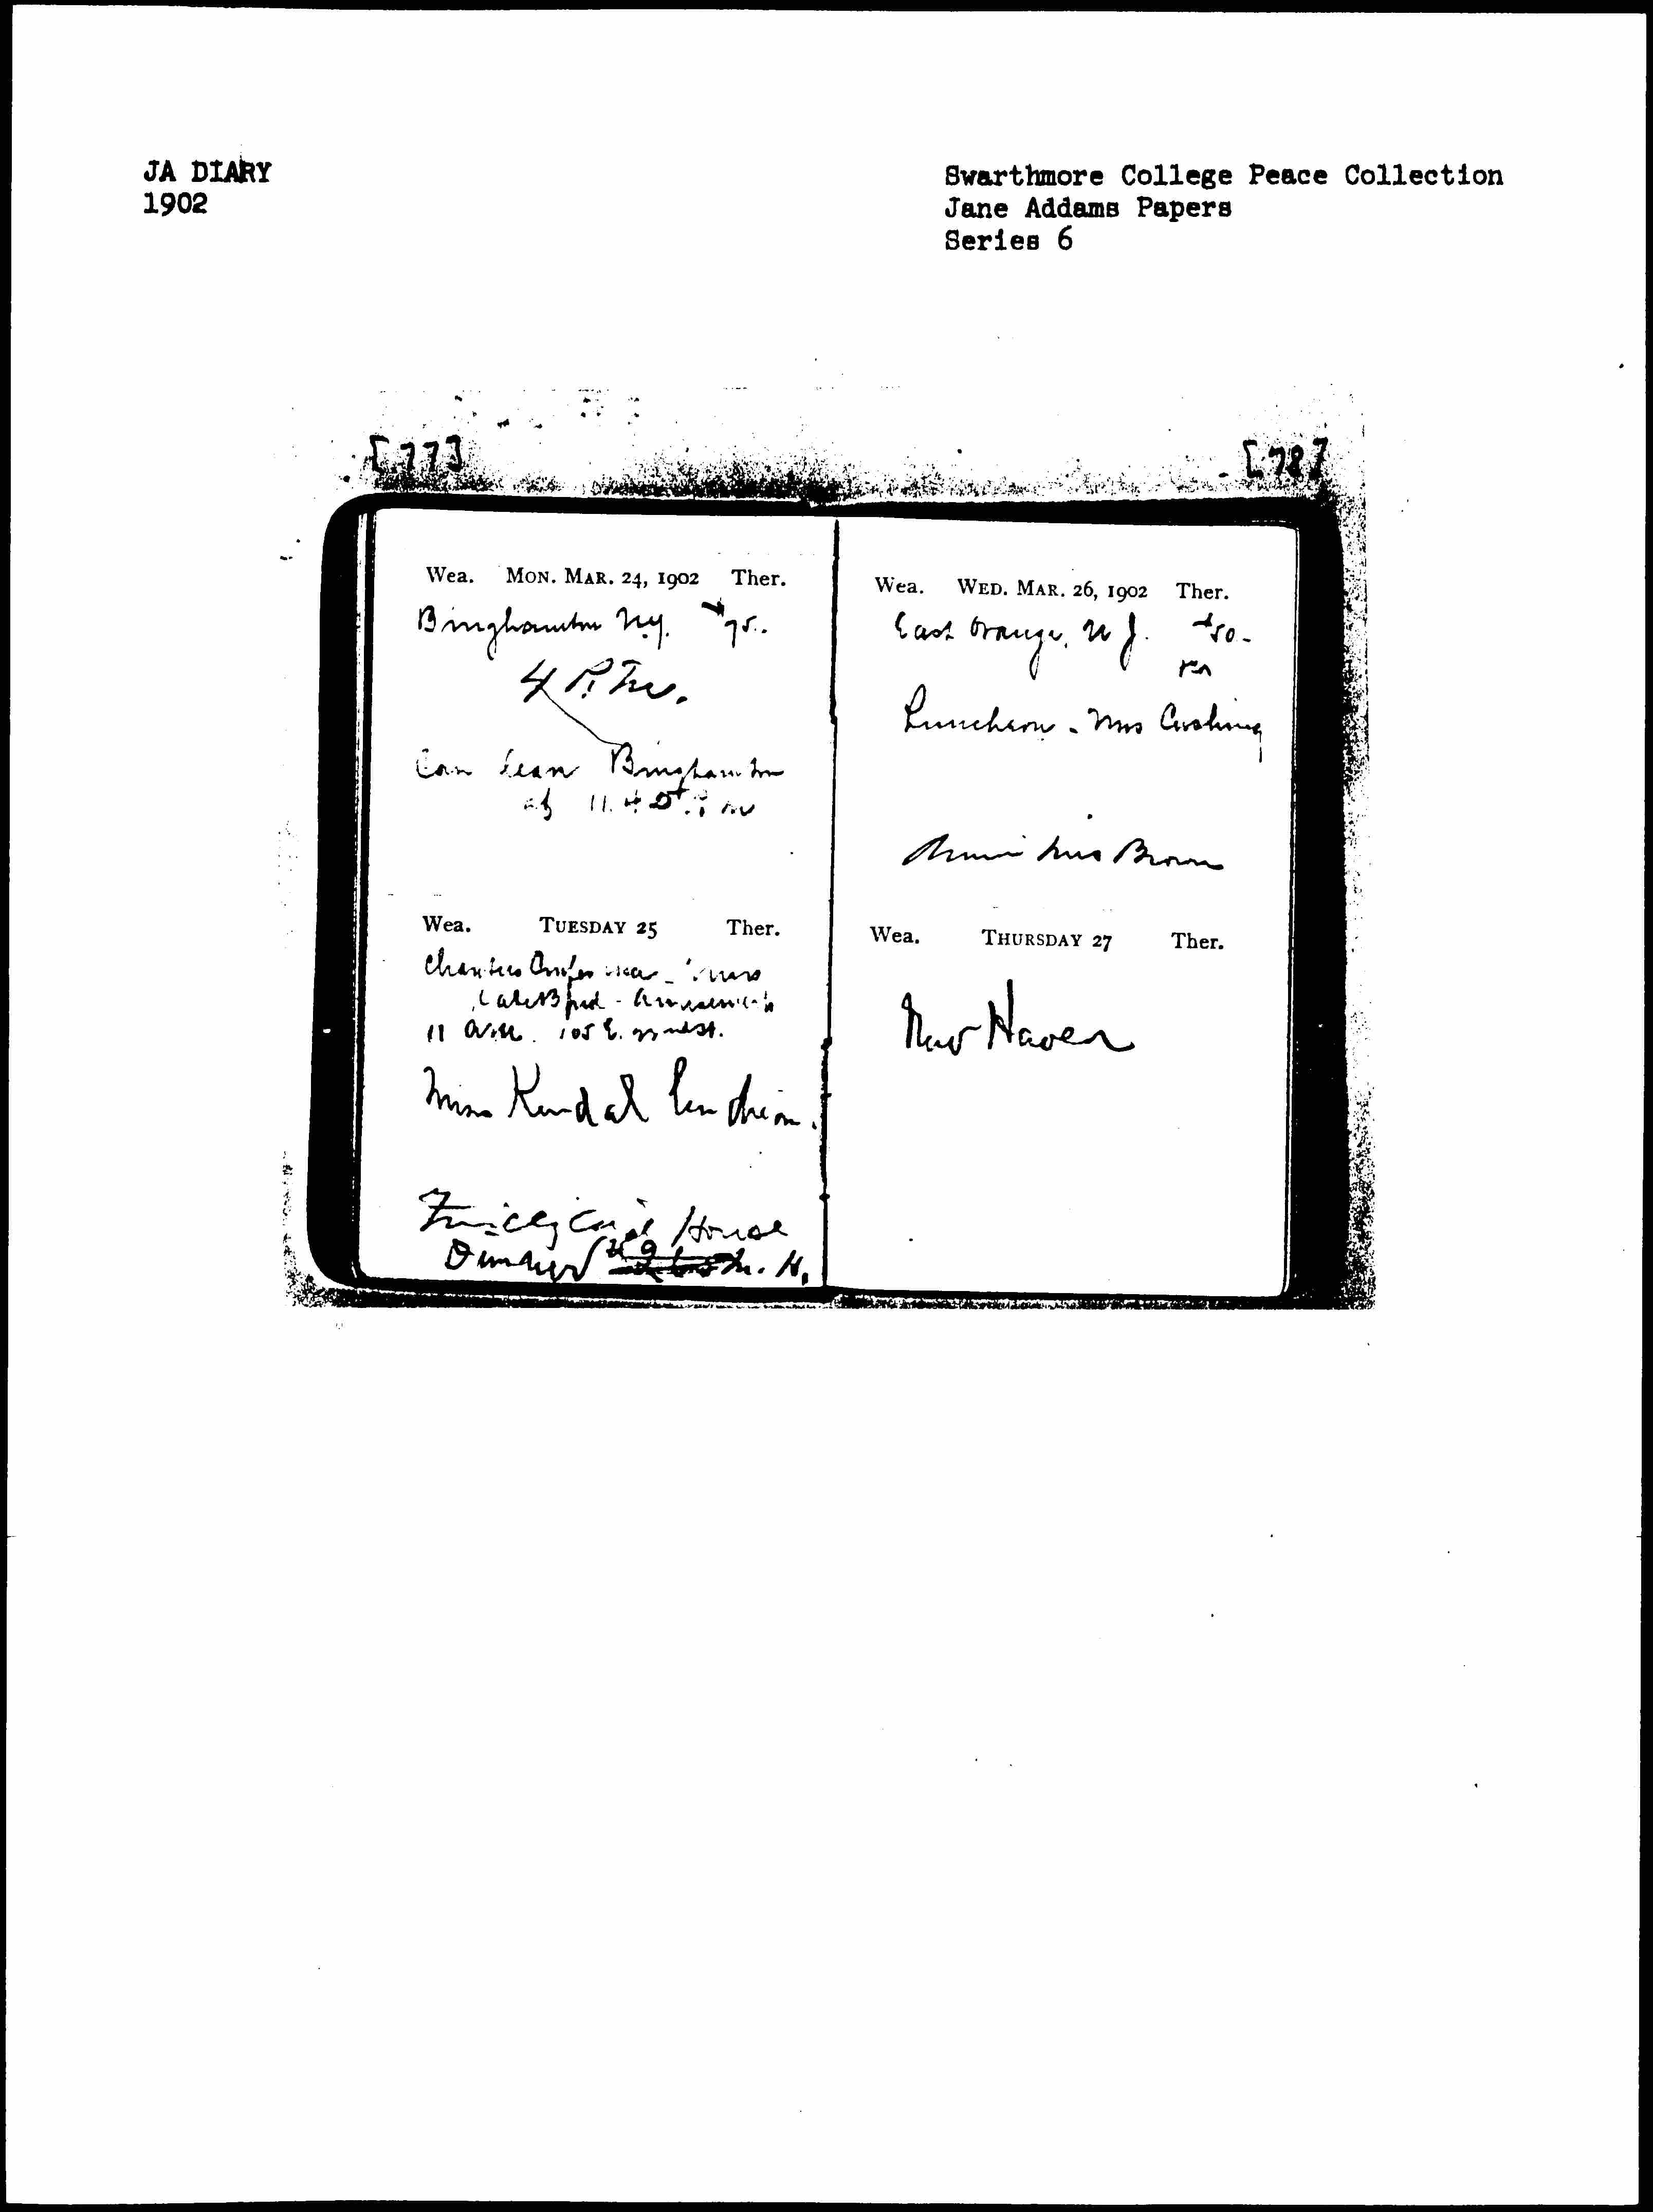 JA DIARY
1902
Swarthmore College Peace Collection
Jane Addams Papers
Series 6
[77]
[78]
Wea. MON. MAR. 24, 1902 Ther.
Binghamton N.Y. $75.
4 P.M.
Can lean Binghamton
at 11.40 P.M
Wea. TUESDAY 25 Ther.
Charities Conference
11 A.M. 105 E. 22nd St.
Miss Kendal luncheon.
House
Dinner N. H.
Wea. WED. MAR. 26, 1902 Ther.
East Orange, N J. $50-
Luncheon - Mrs Cushing
Brown
Wea. THURSDAY 27 Ther.
New Haven